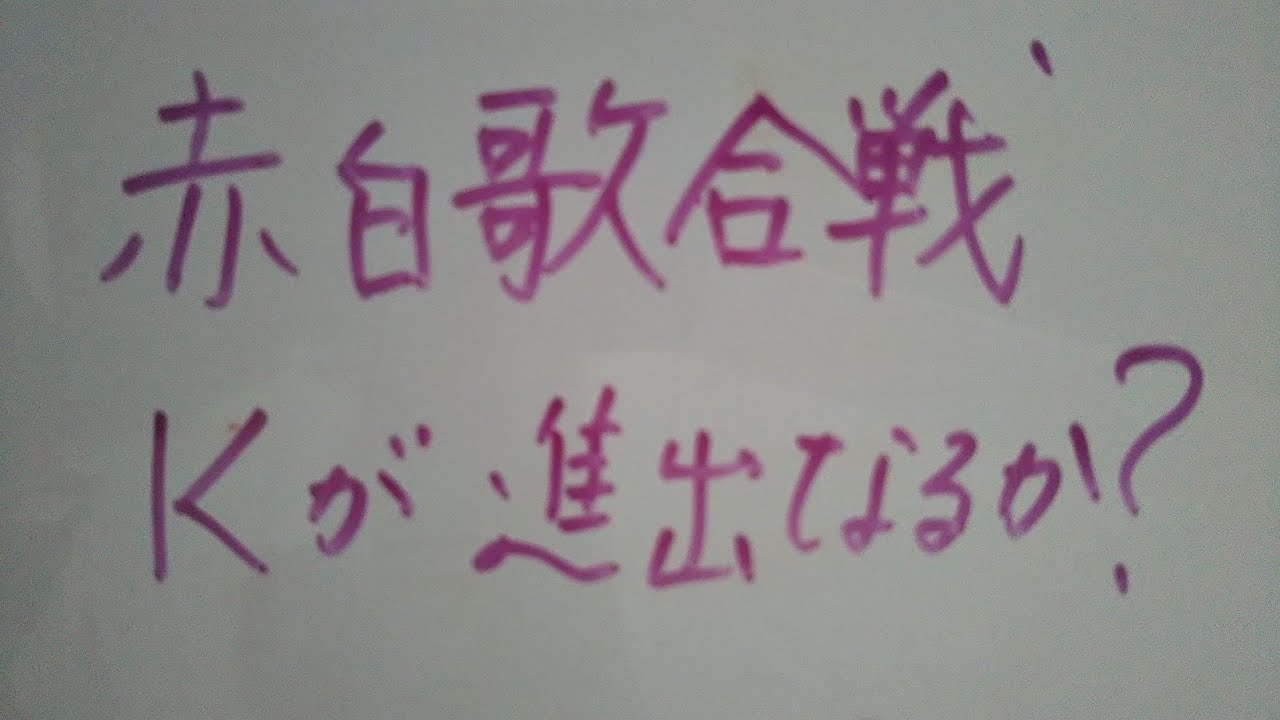 赤白歌合戦
Kが進出なるか?